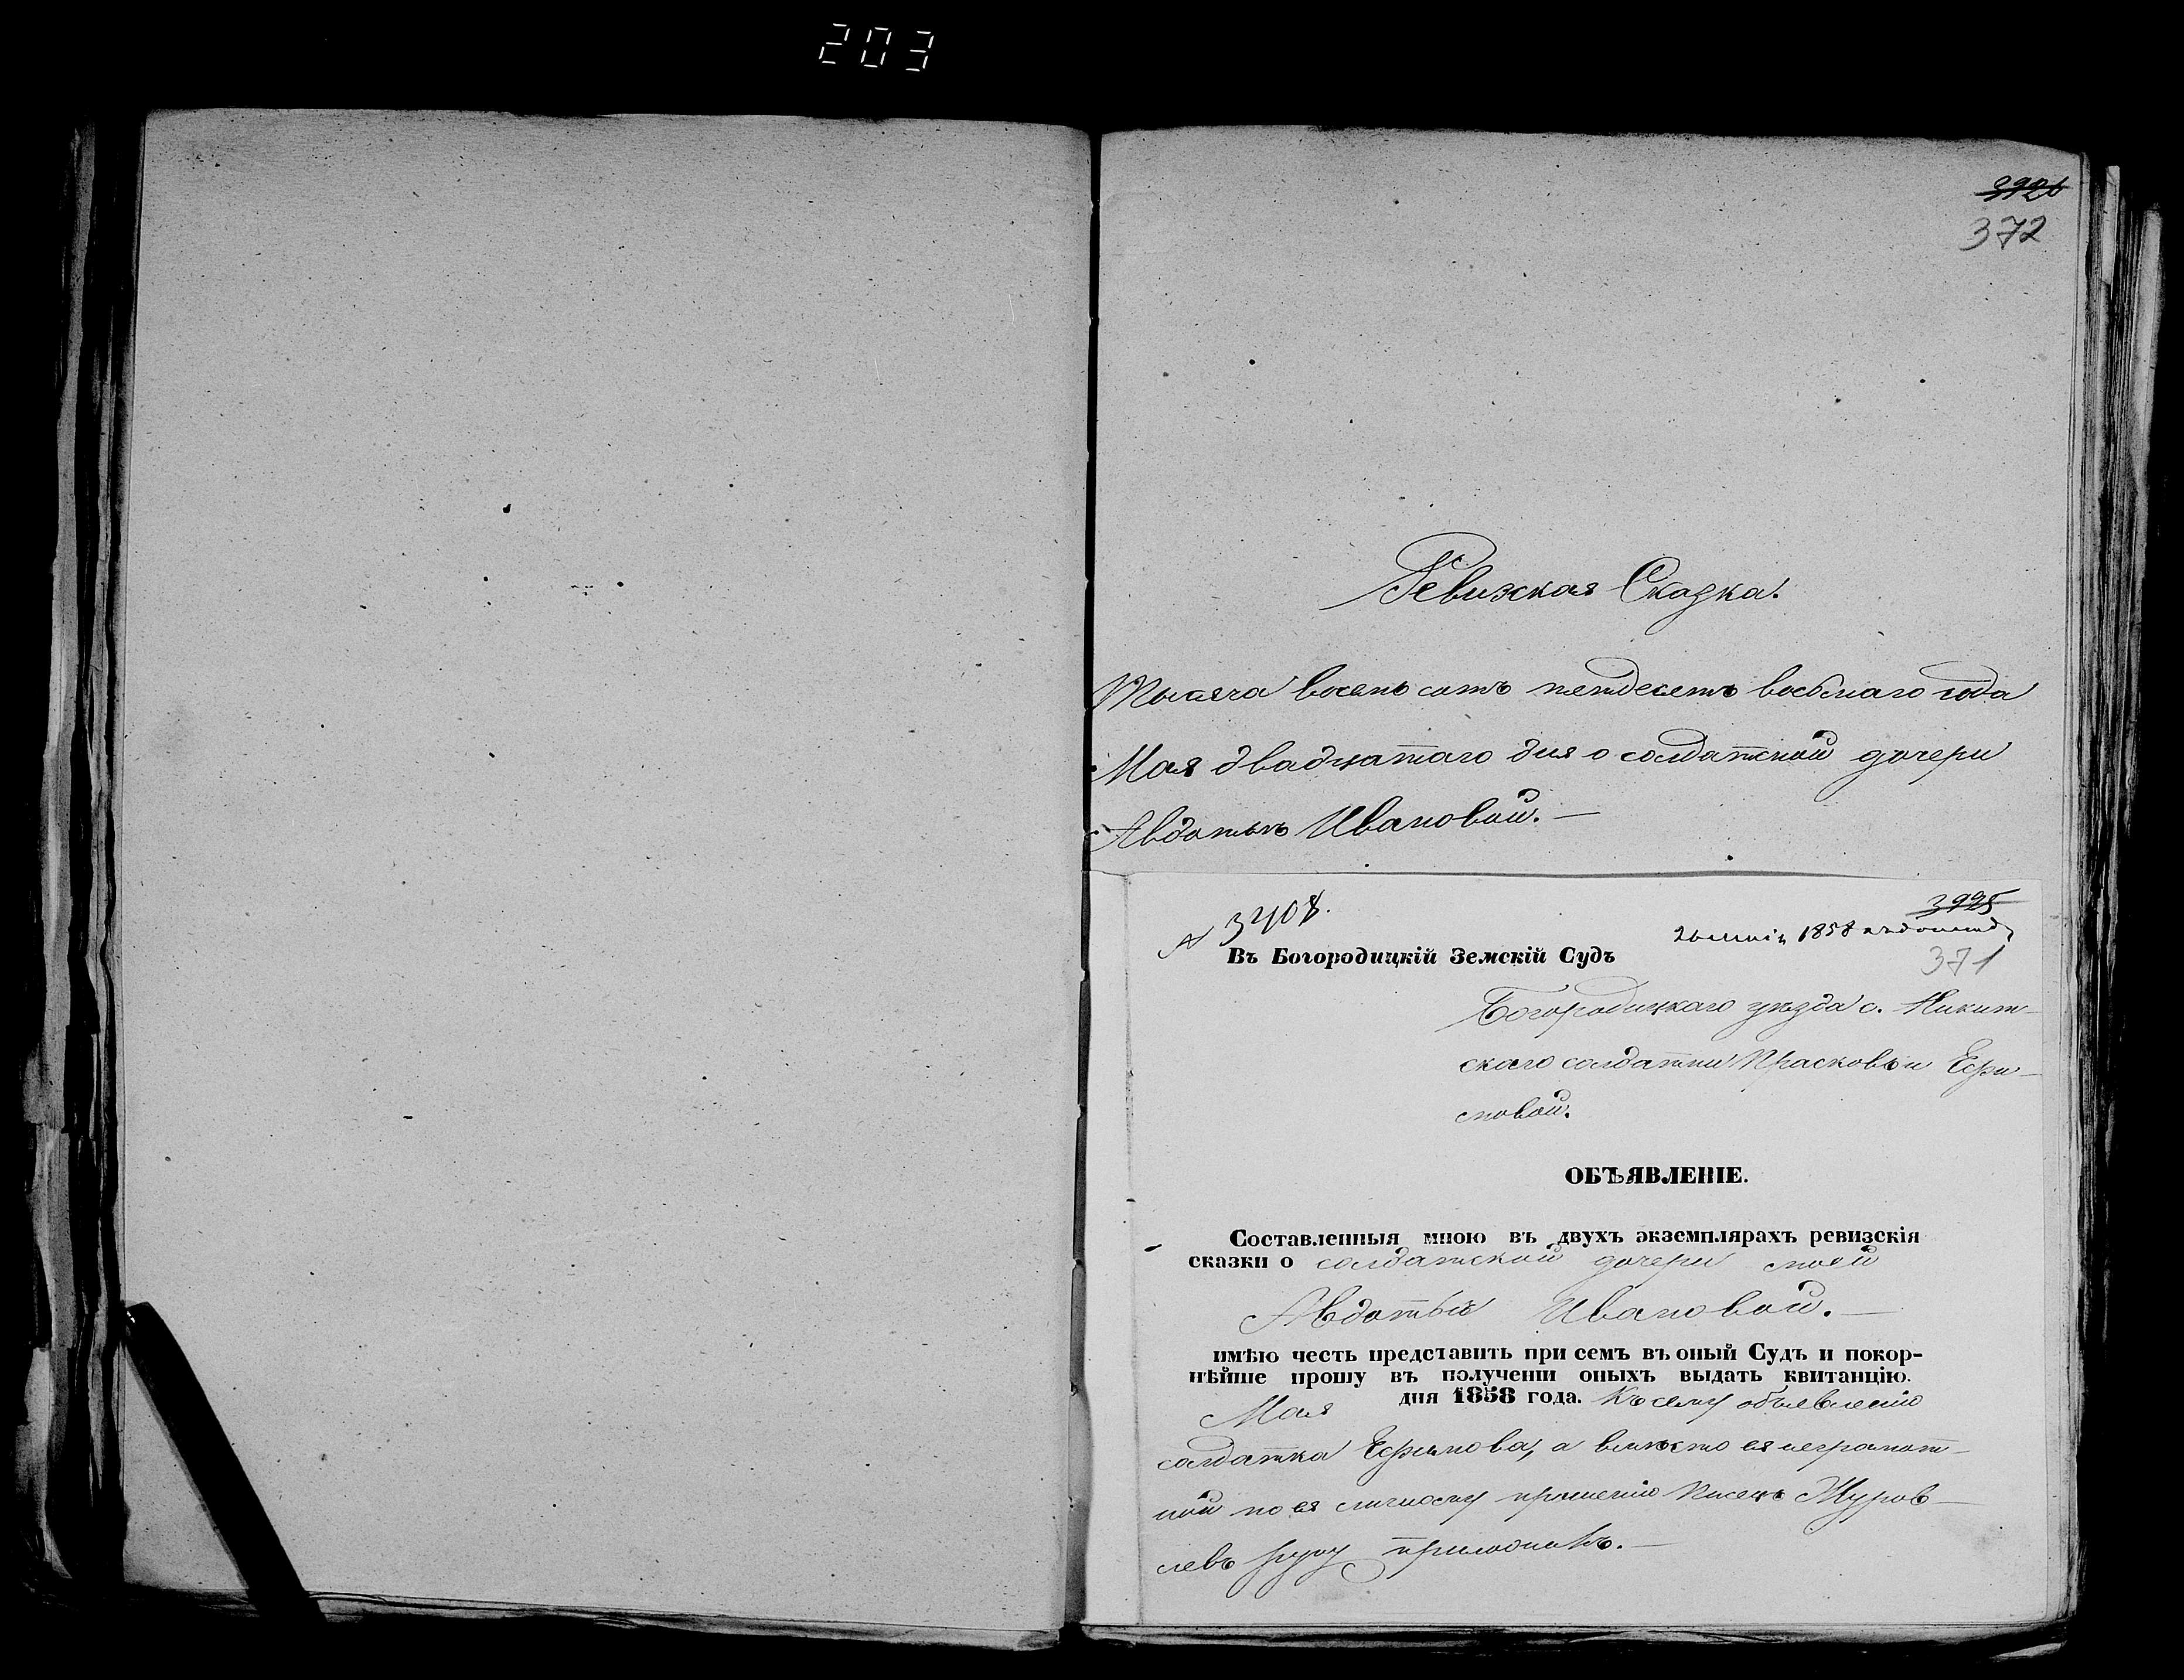 203
3926
372
Ревизская Сказка.
Тысяча восемь сотъ петдесетъ восьмаго года
Мая двадцатаго дня о солдатской дочери
Авдотьѣ Ивановой. —
№ 3408.
3925
1858
371
Въ Богородицкій Земскій Судъ
Богородицкаго уѣзда с. Никит-
скаго солдатки Прасковьи Ефи-
мовой.
ОБЪЯВЛЕНІЕ.
Составленныя мною въ двухъ экземплярахъ ревизскія
сказки о солдатской дочери моей
Авдотьи Ивановой. —
имѣю честь представить при семъ въ оный Судъ и покор-
нѣйше прошу въ полученіи оныхъ выдать квитанцію.
Мая дня 1858 года. Къ сему объевленію
солдатка Ефимова, а вмѣсто ея неграмот-
ной по ея личному прошенію Писецъ Журов-
левъ руку приложилъ. —